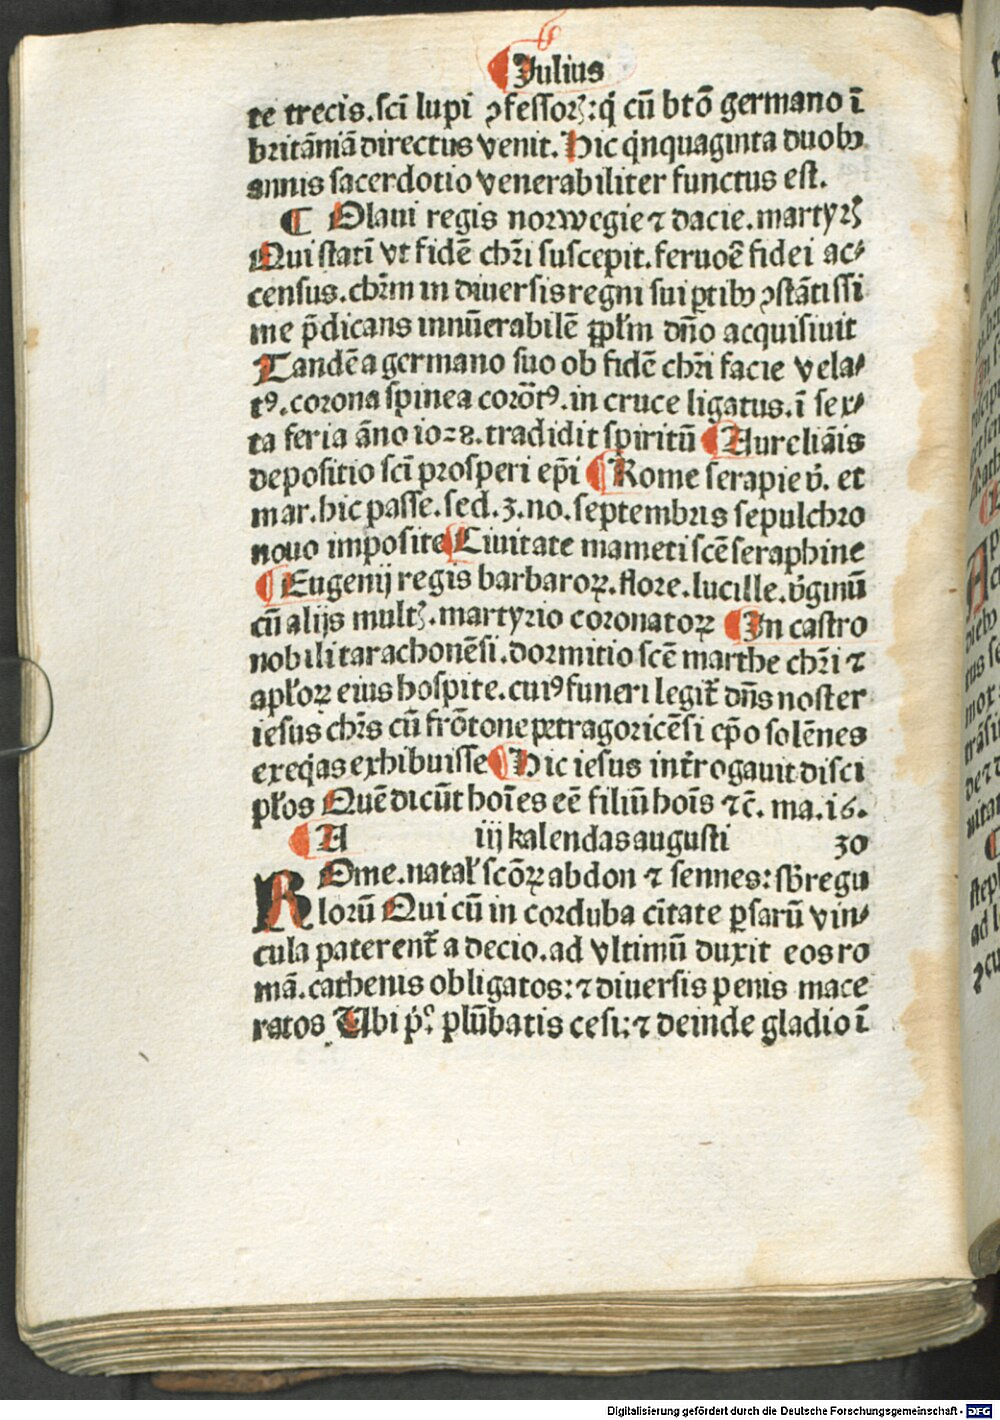 ¶ Julius
te trecis. sci̅ lupi ꝯfessorꝭ: q̇ cu̅ bto̅ germano i̅
brita̅nia̅ directus venit. Hic q̇nquaginta duobꝫ
annis sacerdotio venerabiliter functus est.
¶ Olaui regis norwegie ⁊ dacie. martyrꝭ
Qui stati̅ vt fide̅ chr̅i suscepit. feruoe̅ fidei ac⸗
census. chr̅m in diuersis regni sui ꝑtibꝫ ꝯsta̅tissi
me p̅dicans innu̅erabile̅ ꝓpl̅m dn̅o acquisiuit
Tande̅ a germano suo ob fide̅ chr̅i facie vela⸗
tꝰ. corona spinea coro̅tꝰ. in cruce ligatus. i̅ sex⸗
ta feria a̅no 1028. tradidit spiritu̅ ¶ Aurelia̅is
depositio sci̅ prosperi ep̅i ¶ Rome serapie v̅. et
mar. hic passe. sed. 3. no. septembris sepulchro
nouo imposite ¶ Ciuitate mameti sce̅ seraphine
¶ Eugenij regis barbaroꝝ. flore. lucille. v̅ginu̅
cu̅ alijs multꝭ. martyrio coronatoꝝ ¶ In castro
nobili tarachone̅si. dormitio sce̅ marthe chr̅i ⁊
apl̅oꝝ eius hospite. cuiꝰ funeri legit̅ dn̅s noster
iesus chr̅s cu̅ fro̅tone petragorice̅si ep̅o sole̅nes
exeq̇as exhibuisse ¶ Hic iesus int̅rogauit disci
pl̅os Que̅ dicu̅t hoi̅es ee̅ filiu̅ hoi̅s ⁊c̅. ma. 16.
¶ A iij kalendas augusti 30
ROme. natal̅ sco̅ꝝ abdon ⁊ sennes: sb̅regu
loru̅ Qui cu̅ in corduba ci̅tate ꝑsaru̅ vin⸗
cula paterent̅ a decio. ad vltimu̅ duxit eos ro
ma̅. cathenis obligatos: ⁊ diuersis penis mace
ratos Vbi pꝰ. plu̅batis cesi: ⁊ deinde gladio i̅
Digitalisierung gefördert durch die Deutsche Forschungsgemeinschaft - DFG